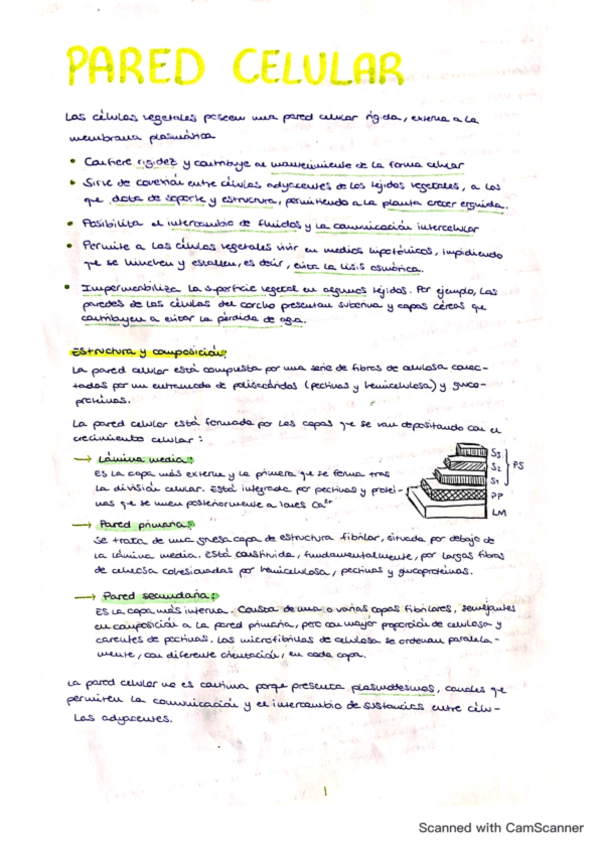 PARED CELULAR
Las células vegetales poseen una pared celular rígida, externa a la
membrana plasmática
• Confiere rigidez y contribuye al mantenimiento de la forma celular
• Sirve de conexión entre células adyacentes de los tejidos vegetales, a los
que dota de soporte y estructura, permitiendo a la planta crecer erguida.
• Posibilita el intercambio de fluidos y la comunicación intercelular
• Permite a las células vegetales vivir en medios hipotónicos, impidiendo
que se hinchen y estallen, es decir, evita la lisis osmótica.
• Impermeabiliza la superficie vegetal en algunos tejidos. Por ejemplo, las
paredes de las células del corcho presentan suberina y capas céreas que
contribuyen a evitar la pérdida de agua.
Estructura y composición:
La pared celular está compuesta por una serie de fibras de celulosa conec-
tadas por un entramado de polisacáridos (pectinas y hemicelulosa) y gluco-
proteínas.
La pared celular está formada por las capas que se van depositando con el
crecimiento celular:
→ Lámina media:
Es la capa más externa y la primera que se forma tras
la división celular. Está integrada por pectinas y proteí-
nas que se unen posteriormente a iones Ca²⁺
S3
S2
S1
PS
PP
LM
→ Pared primaria:
Se trata de una gruesa capa de estructura fibrilar, situada por debajo de
la lámina media. Está constituida, fundamentalmente, por largas fibras
de celulosa cohesionadas por hemicelulosa, pectinas y glucoproteínas.
→ Pared secundaria:
Es la capa más interna. Consta de una o varias capas fibrilares, semejantes
en composición a la pared primaria, pero con mayor proporción de celulosa y
carentes de pectinas. Las microfibrillas de celulosa se ordenan paralela-
mente, con diferente orientación, en cada capa.
La pared celular no es continua porque presenta plasmodesmos, canales que
permiten la comunicación y el intercambio de sustancias entre célu-
las adyacentes.
1
Scanned with CamScanner